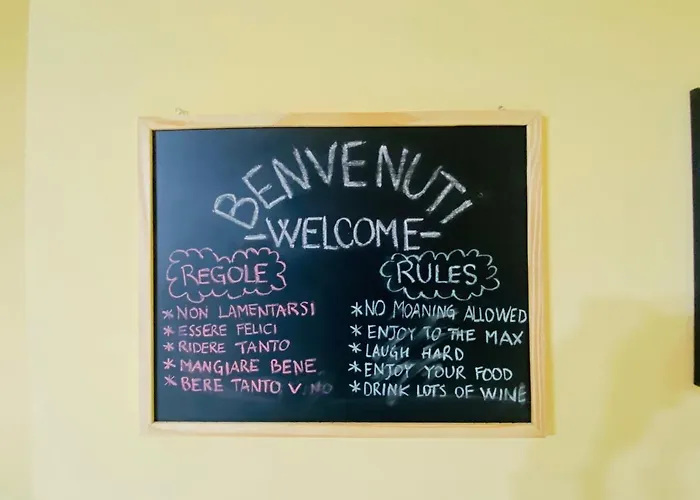 BENVENUTI
-WELCOME-
REGOLE
*NON LAMENTARSI
*ESSERE FELICI
*RIDERE TANTO
*MANGIARE BENE
*BERE TANTO VINO
RULES
*NO MOANING ALLOWED
*ENJOY TO THE MAX
*LAUGH HARD
*ENJOY YOUR FOOD
*DRINK LOTS OF WINE